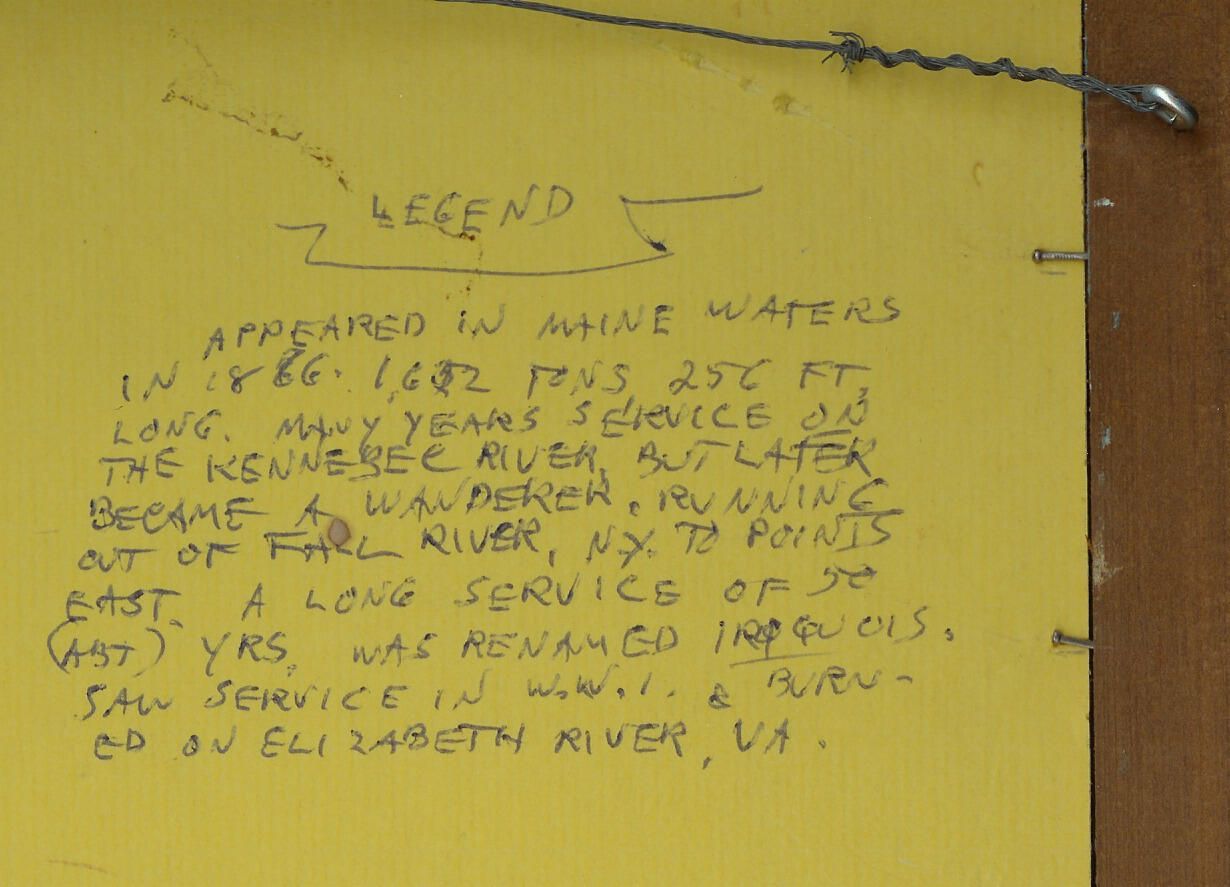 LEGEND
APPEARED IN MAINE WATERS
IN 1866. 1,632 TONS 256 FT,
LONG. MANY YEARS SERVICE ON
THE KENNEBEC RIVER, BUT LATER
BECAME A WANDERER, RUNNING
OUT OF FALL RIVER, N.Y. TO POINTS
EAST. A LONG SERVICE OF 50
(ABT) YRS, WAS RENAMED IROQUOIS.
SAW SERVICE IN W.W.I. & BURN-
ED ON ELIZABETH RIVER, VA.